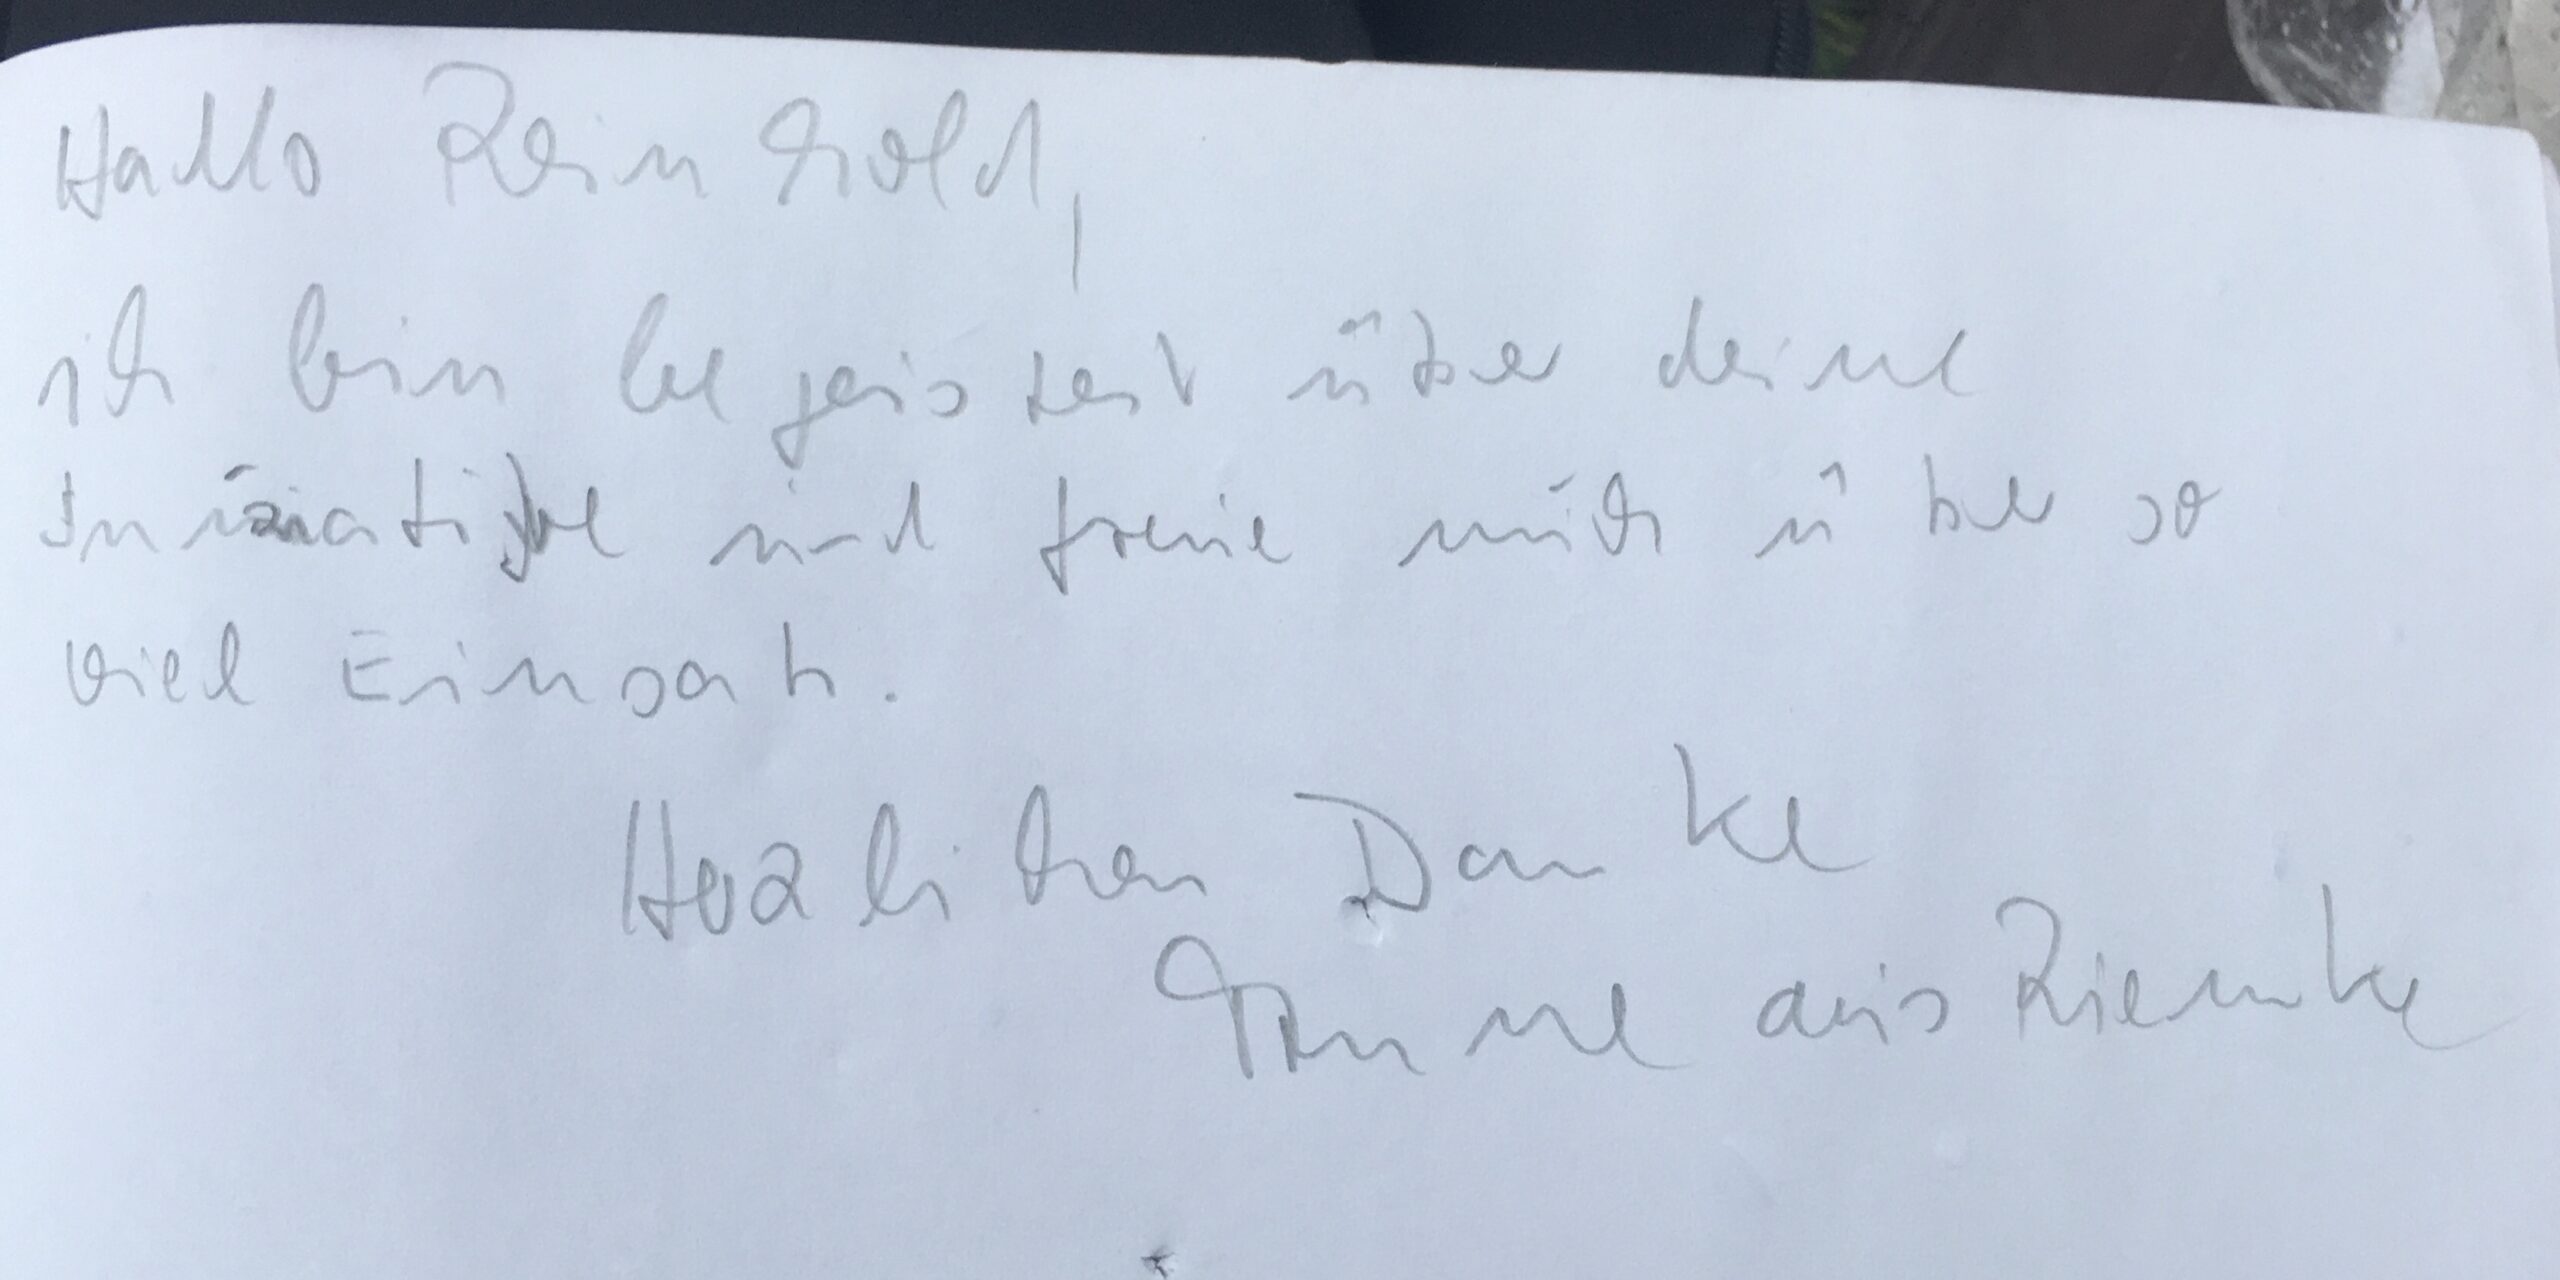 Hallo Reinhold,
ich bin begeistert über deine
Iniziative und freue mich über so
viel Einsatz.
Herzlichen Danke
Anne aus Riemke